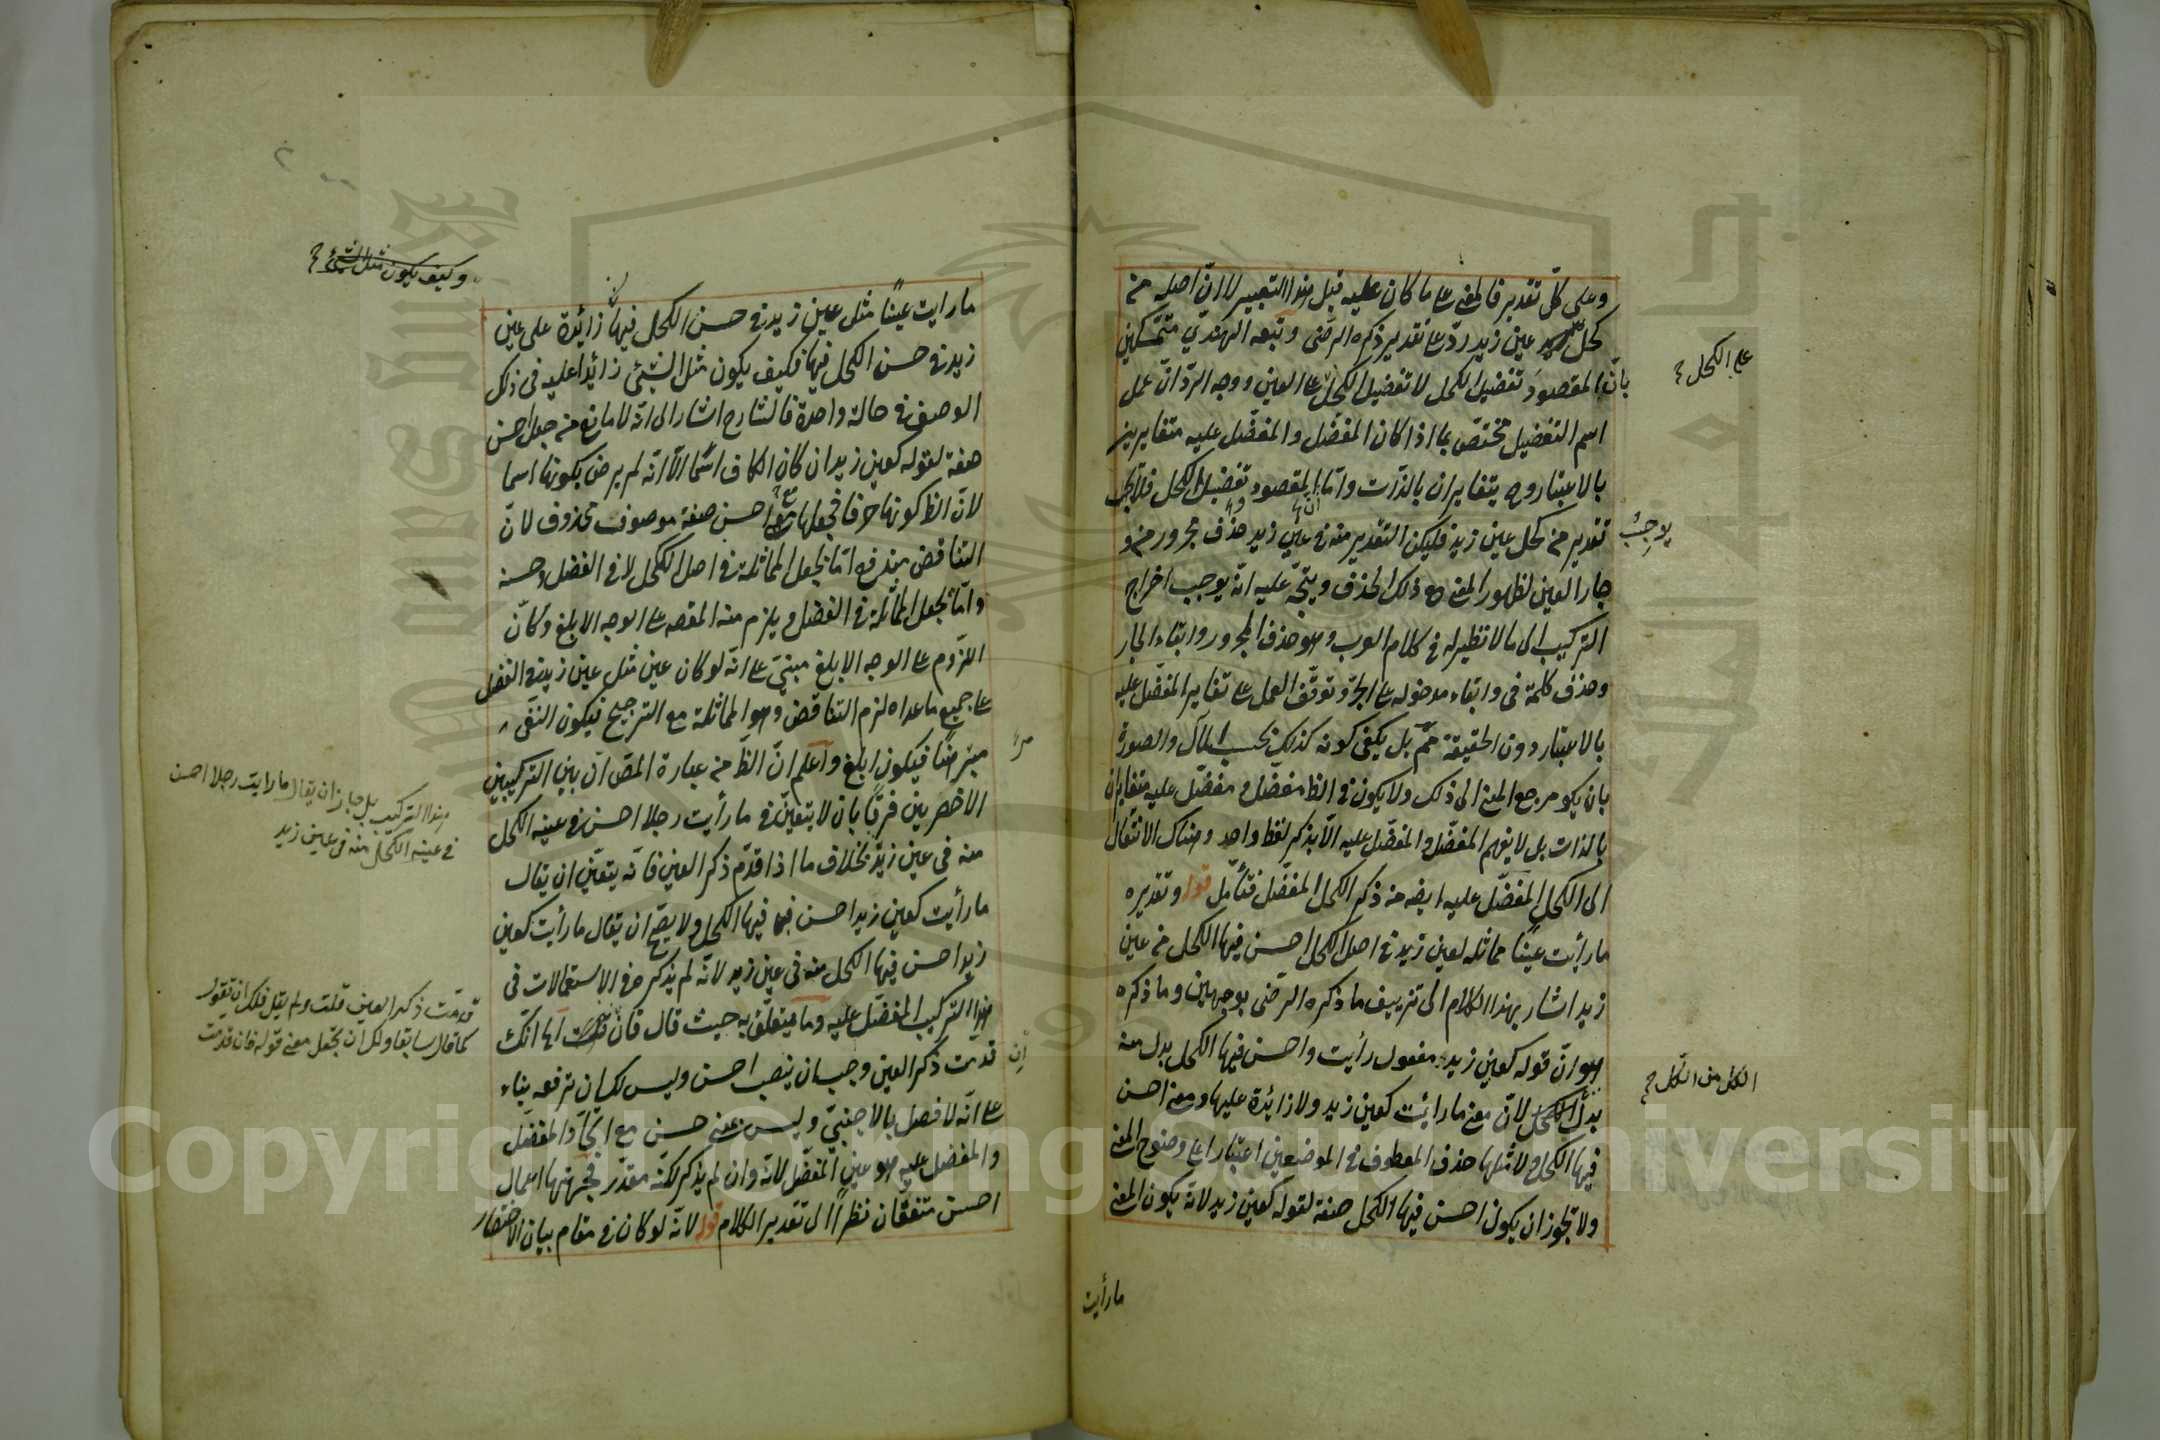 وعلى كل تقدير فالمعنى ع ما كان عليه قبل هذا التعبير لا ان اصله من
كحل عين زيد ردّ ع تقدير ذكره الرضى وتبعه الهندي متمسكين
بانّ المقصود تفضيل الكحل لا تفضيل الكحل ع العين ووجه الردّ انّ عمل
اسم التفضيل مختصّ بما اذا كان المفضّل والمفضّل عليه متغايرين
بالاعتبار وهو يتغايران بالذّات وامّا المقصود تفضيل الكحل فلا يجب
تقدير من كحل عين زيد فليكن التقدير منه في عين زيد حذف مجرور من و
جار العين لظهور المعنى مع ذلك الحذف ويتّجه عليه انّه يوجب اخراج
التركيب الى ما لا نظير له في كلام العرب وهو حذف المجرور وابقاء الجار
وحذف كلمة في وابقاء مدخوله ع الجرّ وتوقّف العمل ع تغاير المفضّل عليه
بالاعتبار دون الحقيقة مم بل يكفى كونه كذلك بحسب المآل والصورة
بان يكو مرجع المعنى الى ذلك ولا يكون في الظ مفضّل ومفضّل عليه متغايران
بالذات بل لا يفهم المفضّل والمفضّل عليه الّا بذكر لفظ واحد وهناك الانتقال
الى الكحل المفضّل عليه ايضه من ذكر الكحل المفضّل فتأمّل قوله وتقديره
ما رأيت عينًا مماثله لعين زيد في اصل الكحل احسن فيها الكحل من عين
زيد اشار بهذا الكلام الى تزييف ما ذكره الرضى بوجهين وما ذكره
هو انّ قوله كعين زيد مفعول رأيت واحسن فيها الكحل بدل منه
بدل الكحل لانّ معنى ما رأيت كعين زيد ولا زائدة عليها ومعنى احسن
فيها الكحل ولا مثلها حذف المعطوف في الموضعين اعتبارا ع وضوح المعنى
ولا يجوز ان يكون احسن فيها الكحل صفة لقوله كعين زيد لانّه يكون المعنى
ما رأيت
على الكحل
يوجب
الكل من الكل
ما رايت عينًا مثل عين زيد في حسن الكحل فيها زائدة على عين
زيد في حسن الكحل فيها فكيف يكون مثل الشئ زائدا عليه في ذلك
الوصف في حالة واحدة فالشارح اشار الى انه لا مانع من جعل احسن
صفة لقوله كعين زيد ان كان الكاف اسما الّا انّه لم يرض بكونها اسما
لانّ الظ كونها حرفا فجعلها مع احسن صفة موصوف محذوف لانّ
التناقض مندفع امّا بجعل المماثلة في اصل الكحل لا في الفضل وحسنه
وامّا بجعل المماثلة في الفضل ويلزم منه المقصه ع الوجه الابلغ وكانّ
اللزوم ع الوجه الابلغ مبنيّ ع انّه لو كان عين مثل عين زيد في الفضل
ع جميع ما عداه لزم التناقض وهو المماثلة مع الترجيح فيكون النفي
مبرهنًا فيكون ابلغ واعلم انّ الظّ من عبارة المصّ انّ بين التركيبين
الاخصرين فرقًا بان لا يتعيّن في ما رأيت رجلا احسن في عينه الكحل
منه في عين زيد بخلاف ما اذا قدّم ذكر العين فانّه يتعيّن ان يقال
ما رأيت كعين زيد احسن فيها الكحل ولا يصحّ ان يقال ما رأيت كعين
زيد احسن فيها الكحل منه في عين زيد لانّه لم يذكر في الاستعمالات في
هذا التركيب المفضّل عليه وما يتعلّق به حيث قال فان قدّمت اه انّك
قدمت ذكر العين وجب ان ينصب احسن وليس لك ان ترفعه بناء
ع انّه لا فصل بالاجنبيّ وليس بمعنى حسن مع اتّحاد المفضّل
والمفضل عليه هو عين المفضّل لانّه وان لم يذكر لكنّه مقدّر فجهتها اعمال
احسن متفقان نظرًا الى تقدير الكلام قوله لانّه لو كان في مقام بيان الاختصار
وكيف يكون مثل الشئ
هذا التركيب بل جاز ان يقال ما رايت رجلا احسن
في عينه الكحل منه في عين زيد
قدّمت ذكر العين قلت ولم يقل فلك ان تقول
كما قال سابقا ولك ان تجعل معنى قوله فان قدمت
ان
Copyright © King Saud University